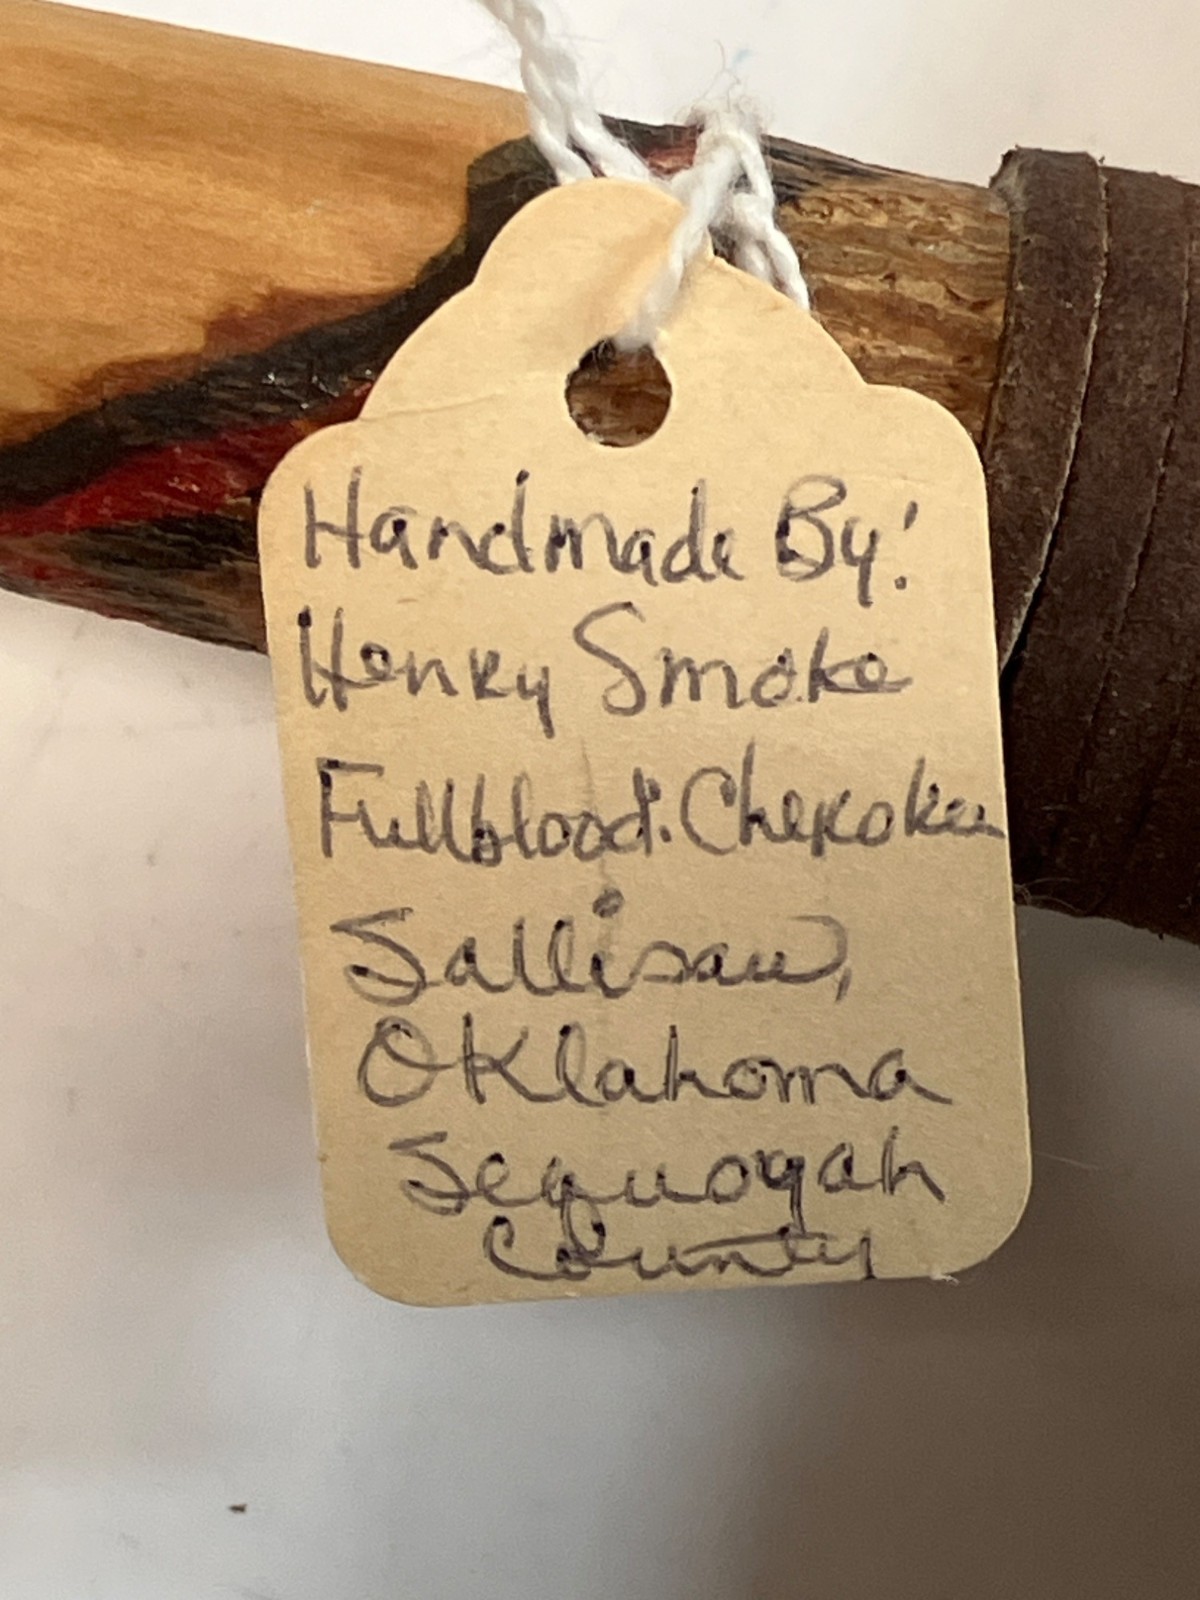 Handmade By:
Henry Smoke
Fullblood: Cherokee
Sallisaw,
Oklahoma
Sequoyah
County